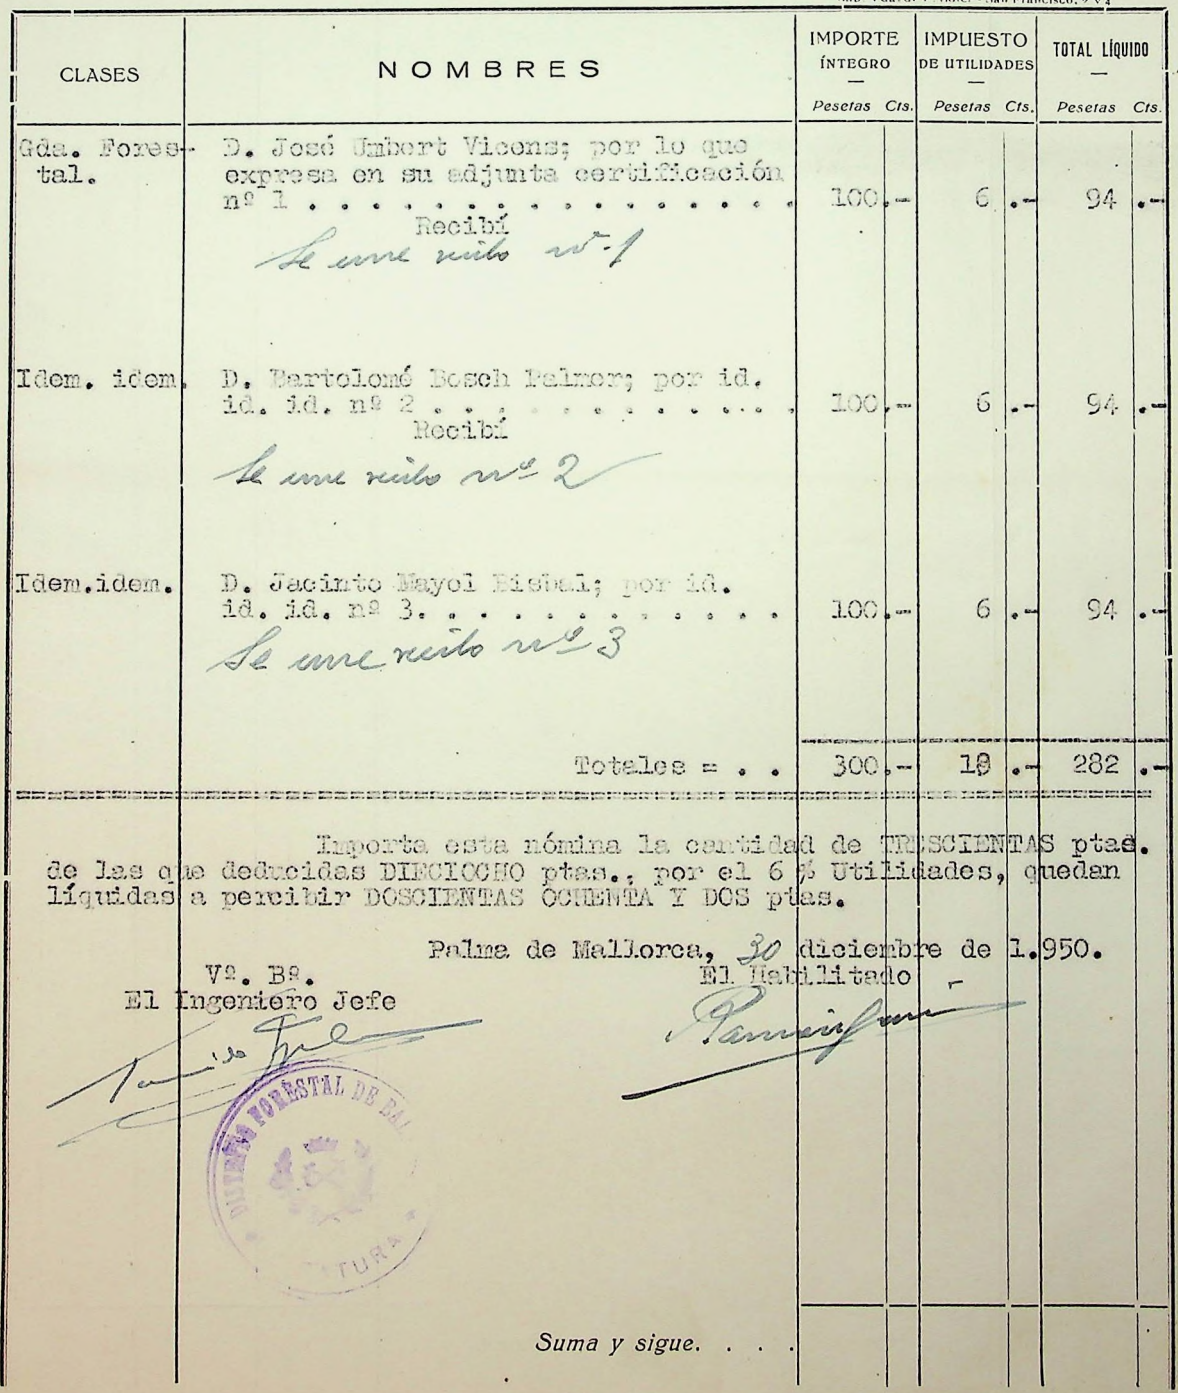 CLASES NOMBRES IMPORTE ÍNTEGRO IMPUESTO DE UTILIDADES TOTAL LÍQUIDO
Pesetas Cts. Pesetas Cts. Pesetas Cts.
Gda. Fores- D. José Umbert Vicens; por lo que
tal. expresa en su adjunta certificación
nº 1 . . . . . . . . . . . . . . . . . 100.- 6 .- 94 .-
Recibí
Se une recibo nº 1
Idem. idem. D. Bartolomé Bosch Palmer; por id.
id. id. nº 2 . . . . . . . . . . . . . 100.- 6 .- 94 .-
Recibí
Se une recibo nº 2
Idem.idem. D. Jacinto Mayol Bisbal; por id.
id. id. nº 3. . . . . . . . . . . . . 100.- 6 .- 94 .-
Se une recibo nº 3
Totales = . . 300.- 18 .- 282 .-
Importa esta nómina la cantidad de TRESCIENTAS ptas.
de las que deducidas DIECIOCHO ptas., por el 6 % Utilidades, quedan
líquidas a percibir DOSCIENTAS OCHENTA Y DOS ptas.
Palma de Mallorca, 30 diciembre de 1.950.
Vº. Bº. El Habilitado
El Ingeniero Jefe
DISTRITO FORESTAL DE BA
TURA
Suma y sigue. . . .